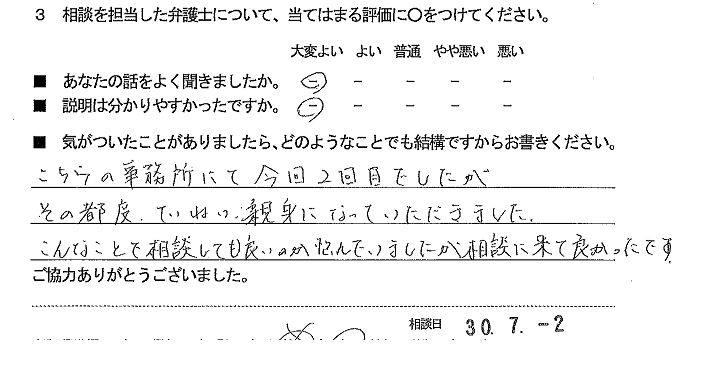 3 相談を担当した弁護士について、当てはまる評価に〇をつけてください。
大変よい よい 普通 やや悪い 悪い
■ あなたの話をよく聞きましたか。 - - - - -
■ 説明は分かりやすかったですか。 - - - - -
■ 気がついたことがありましたら、どのようなことでも結構ですからお書きください。
こちらの事務所にて今回2回目でしたが
その都度、ていねい、親身になっていただきました。
こんなことで相談しても良いのか悩んでいましたが相談に来て良かったです
ご協力ありがとうございました。
相談日 30. 7. -2